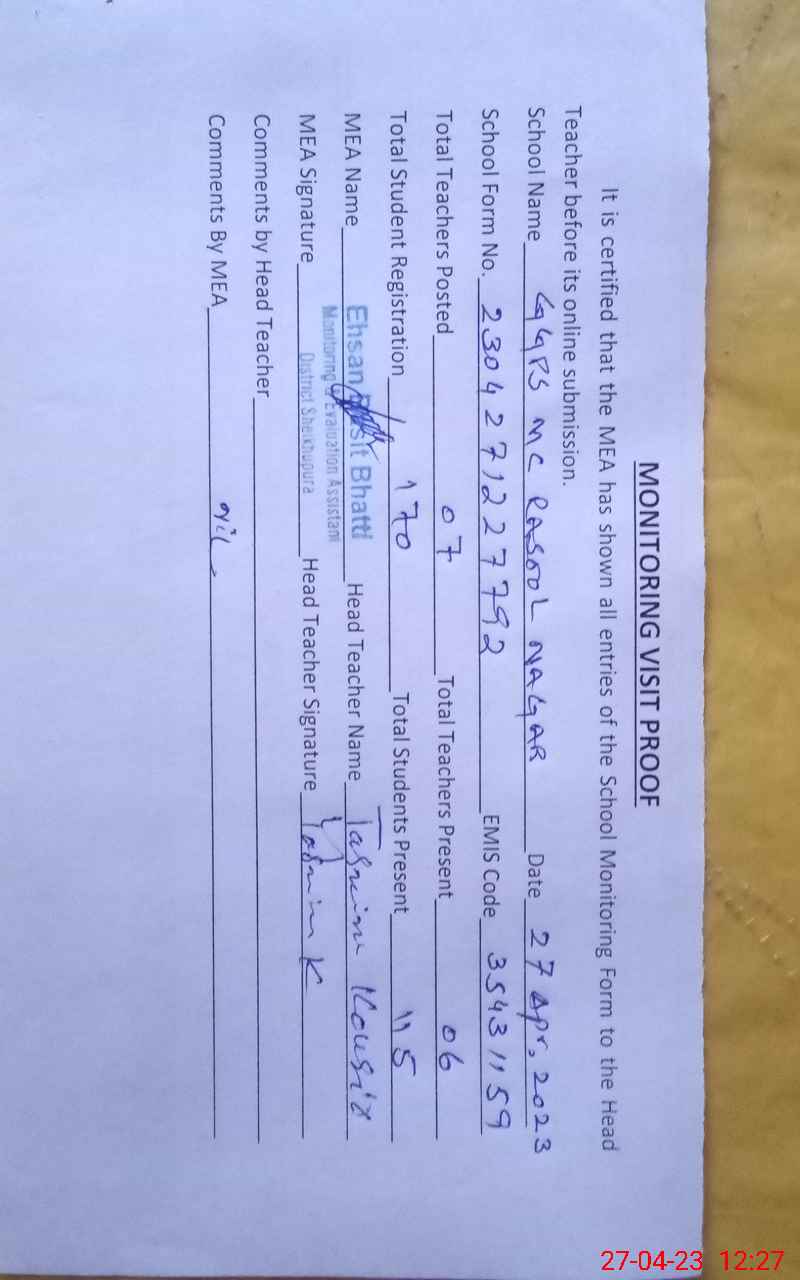 MONITORING VISIT PROOF
It is certified that the MEA has shown all entries of the School Monitoring Form to the Head
Teacher before its online submission.
School Name GGPS MC RASOOL NAGAR Date 27 Apr, 2023
School Form No. 2304271227792 EMIS Code 35431159
Total Teachers Posted 07 Total Teachers Present 06
Total Student Registration 170 Total Students Present 115
MEA Name Ehsan Basit Bhatti Head Teacher Name Tasmine Kousar
Monitoring & Evaluation Assistant
MEA Signature District Sheikhupura Head Teacher Signature Tasmin K
Comments by Head Teacher
Comments By MEA Nil
27-04-23 12:27